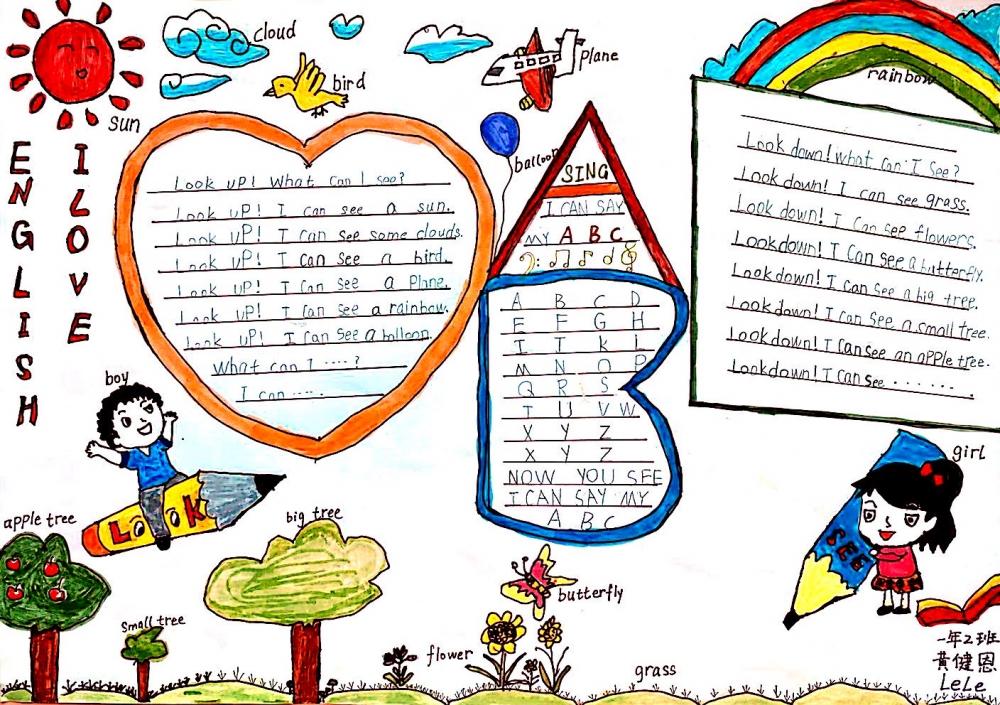 cloud
bird
plane
sun
rainbow
balloon
I LOVE
ENGLISH
Look uP! What can I see?
Look uP! I can see a sun.
Look uP! I can see some clouds.
Look uP! I can see a bird.
Look uP! I can see a Plane.
Look uP! I can see a rainbow.
Look uP! I can see a balloon.
What can I ····?
I can ····.
SING
I CAN SAY
MY A B C
A B C D
E F G H
I J K L
M N O P
Q R S
T U V W
X Y Z
X Y Z
NOW YOU SEE
I CAN SAY MY
A B C
Look down! what can I see?
Look down! I can see grass.
Look down! I can see flowers.
Look down! I can see a butterfly.
Look down! I can see a big tree.
Look down! I can see a small tree.
Look down! I can see an apple tree.
Look down! I can see ·······
boy
LOOK
girl
SEE
apple tree
big tree
small tree
butterfly
flower
grass
一年2班
黄健恩
LeLe